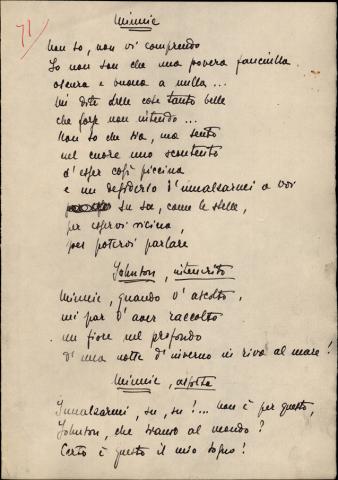 71
Minnie
Non so, non vi comprendo
Io non son che una povera fanciulla
oscura e buona a nulla...
Mi dite delle cose tanto belle
che forse non intendo...
Non so che sia, ma sento
nel cuore uno scontento
d'esser così piccina
e un desiderio d'innalzarmi a voi
su su, come le stelle,
per esservi vicina,
per potervi parlare
Johnson, intenerito
Minnie, quando v'ascolto,
mi par d'aver raccolto
un fiore nel profondo
d'una notte d'inverno in riva al mare!
Minnie, assorta
Innalzarmi, su, su!... non è per questo,
Johnson, che siamo al mondo?
Certo è questo il mio sogno!